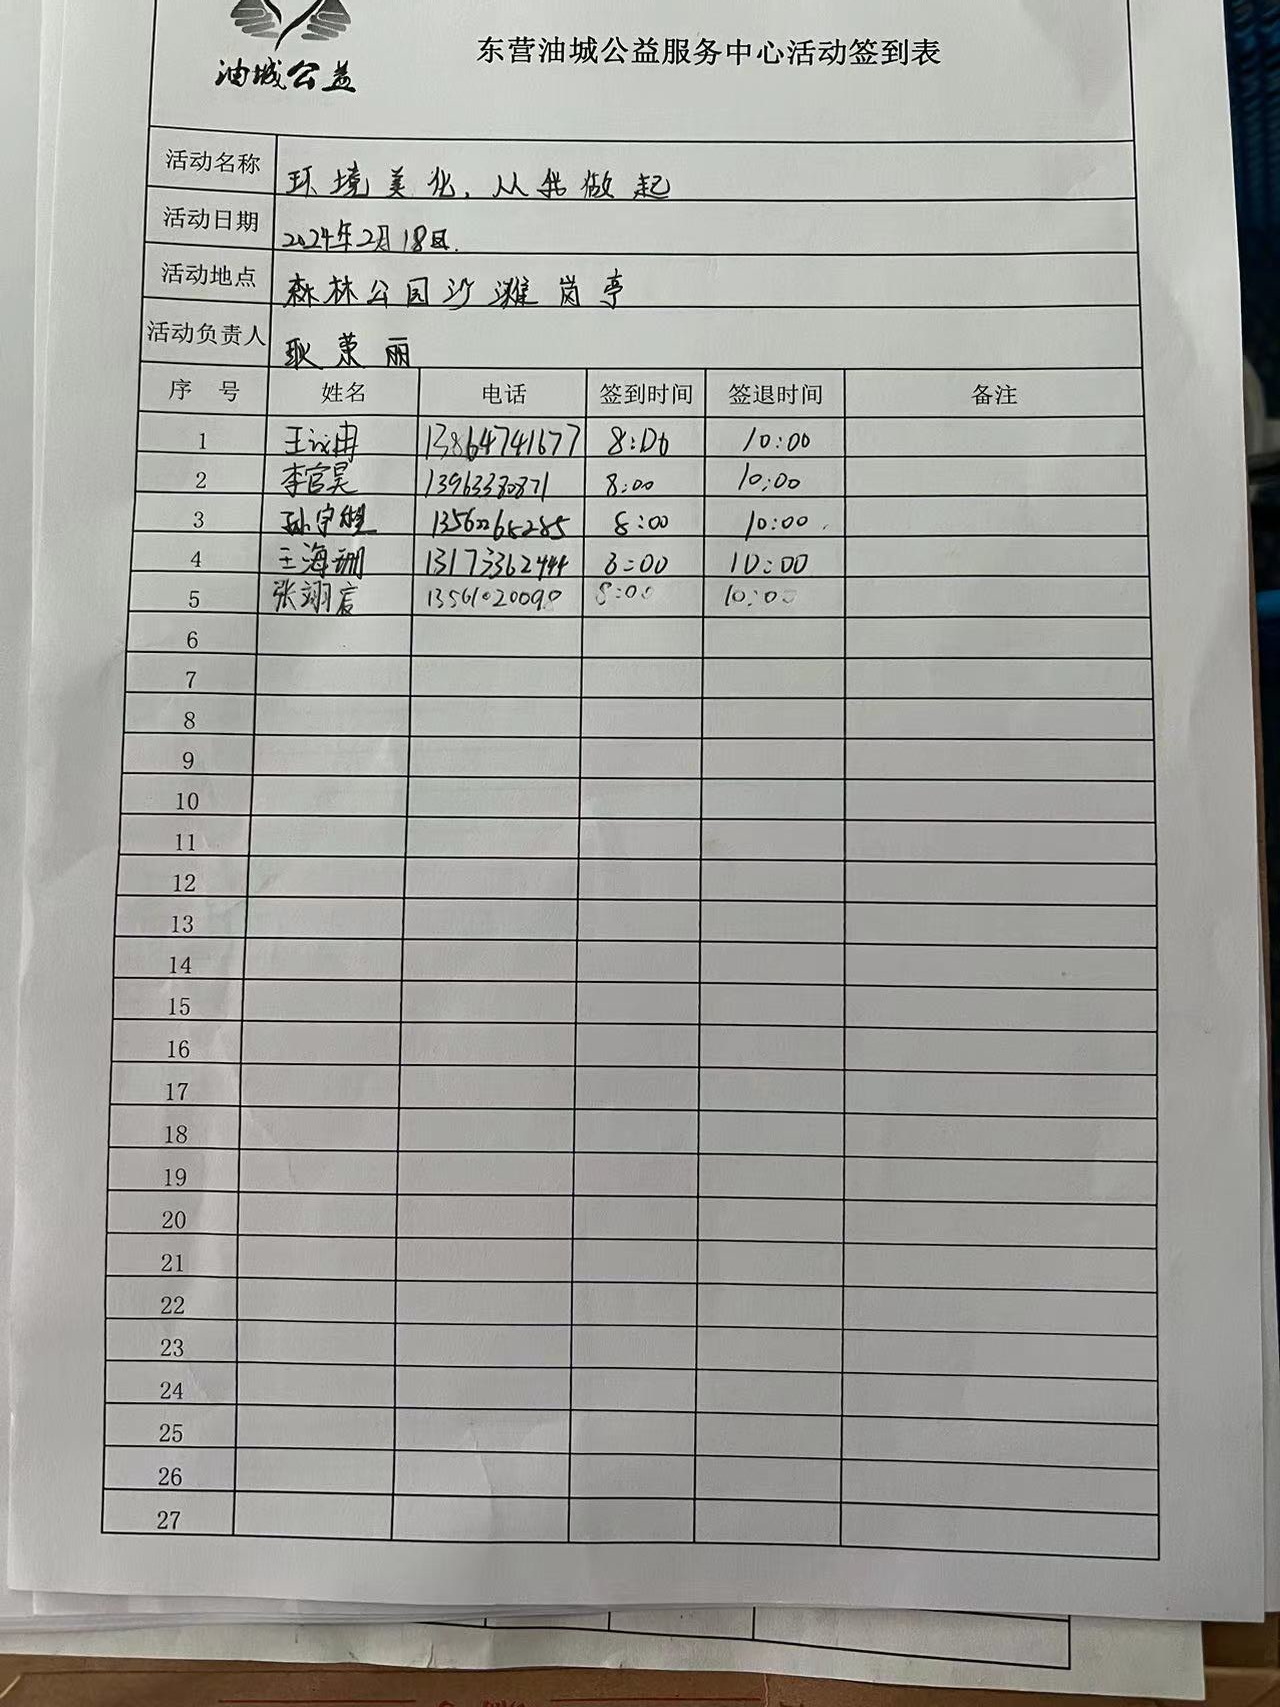 油城公益
东营油城公益服务中心活动签到表
活动名称 环境美化，从我做起
活动日期 2024年2月18日.
活动地点 森林公园沙滩岗亭
活动负责人 耿荣丽
序 号 姓名 电话 签到时间 签退时间 备注
1 王议冉 13864741677 8:00 10:00
2 李官昊 13963380871 8:00 10:00
3 孙宇 8:00 10:00
4 王海珊 13173362444 8:00 10:00
5 张翊宸 13561020090 8:00 10:00
6
7
8
9
10
11
12
13
14
15
16
17
18
19
20
21
22
23
24
25
26
27